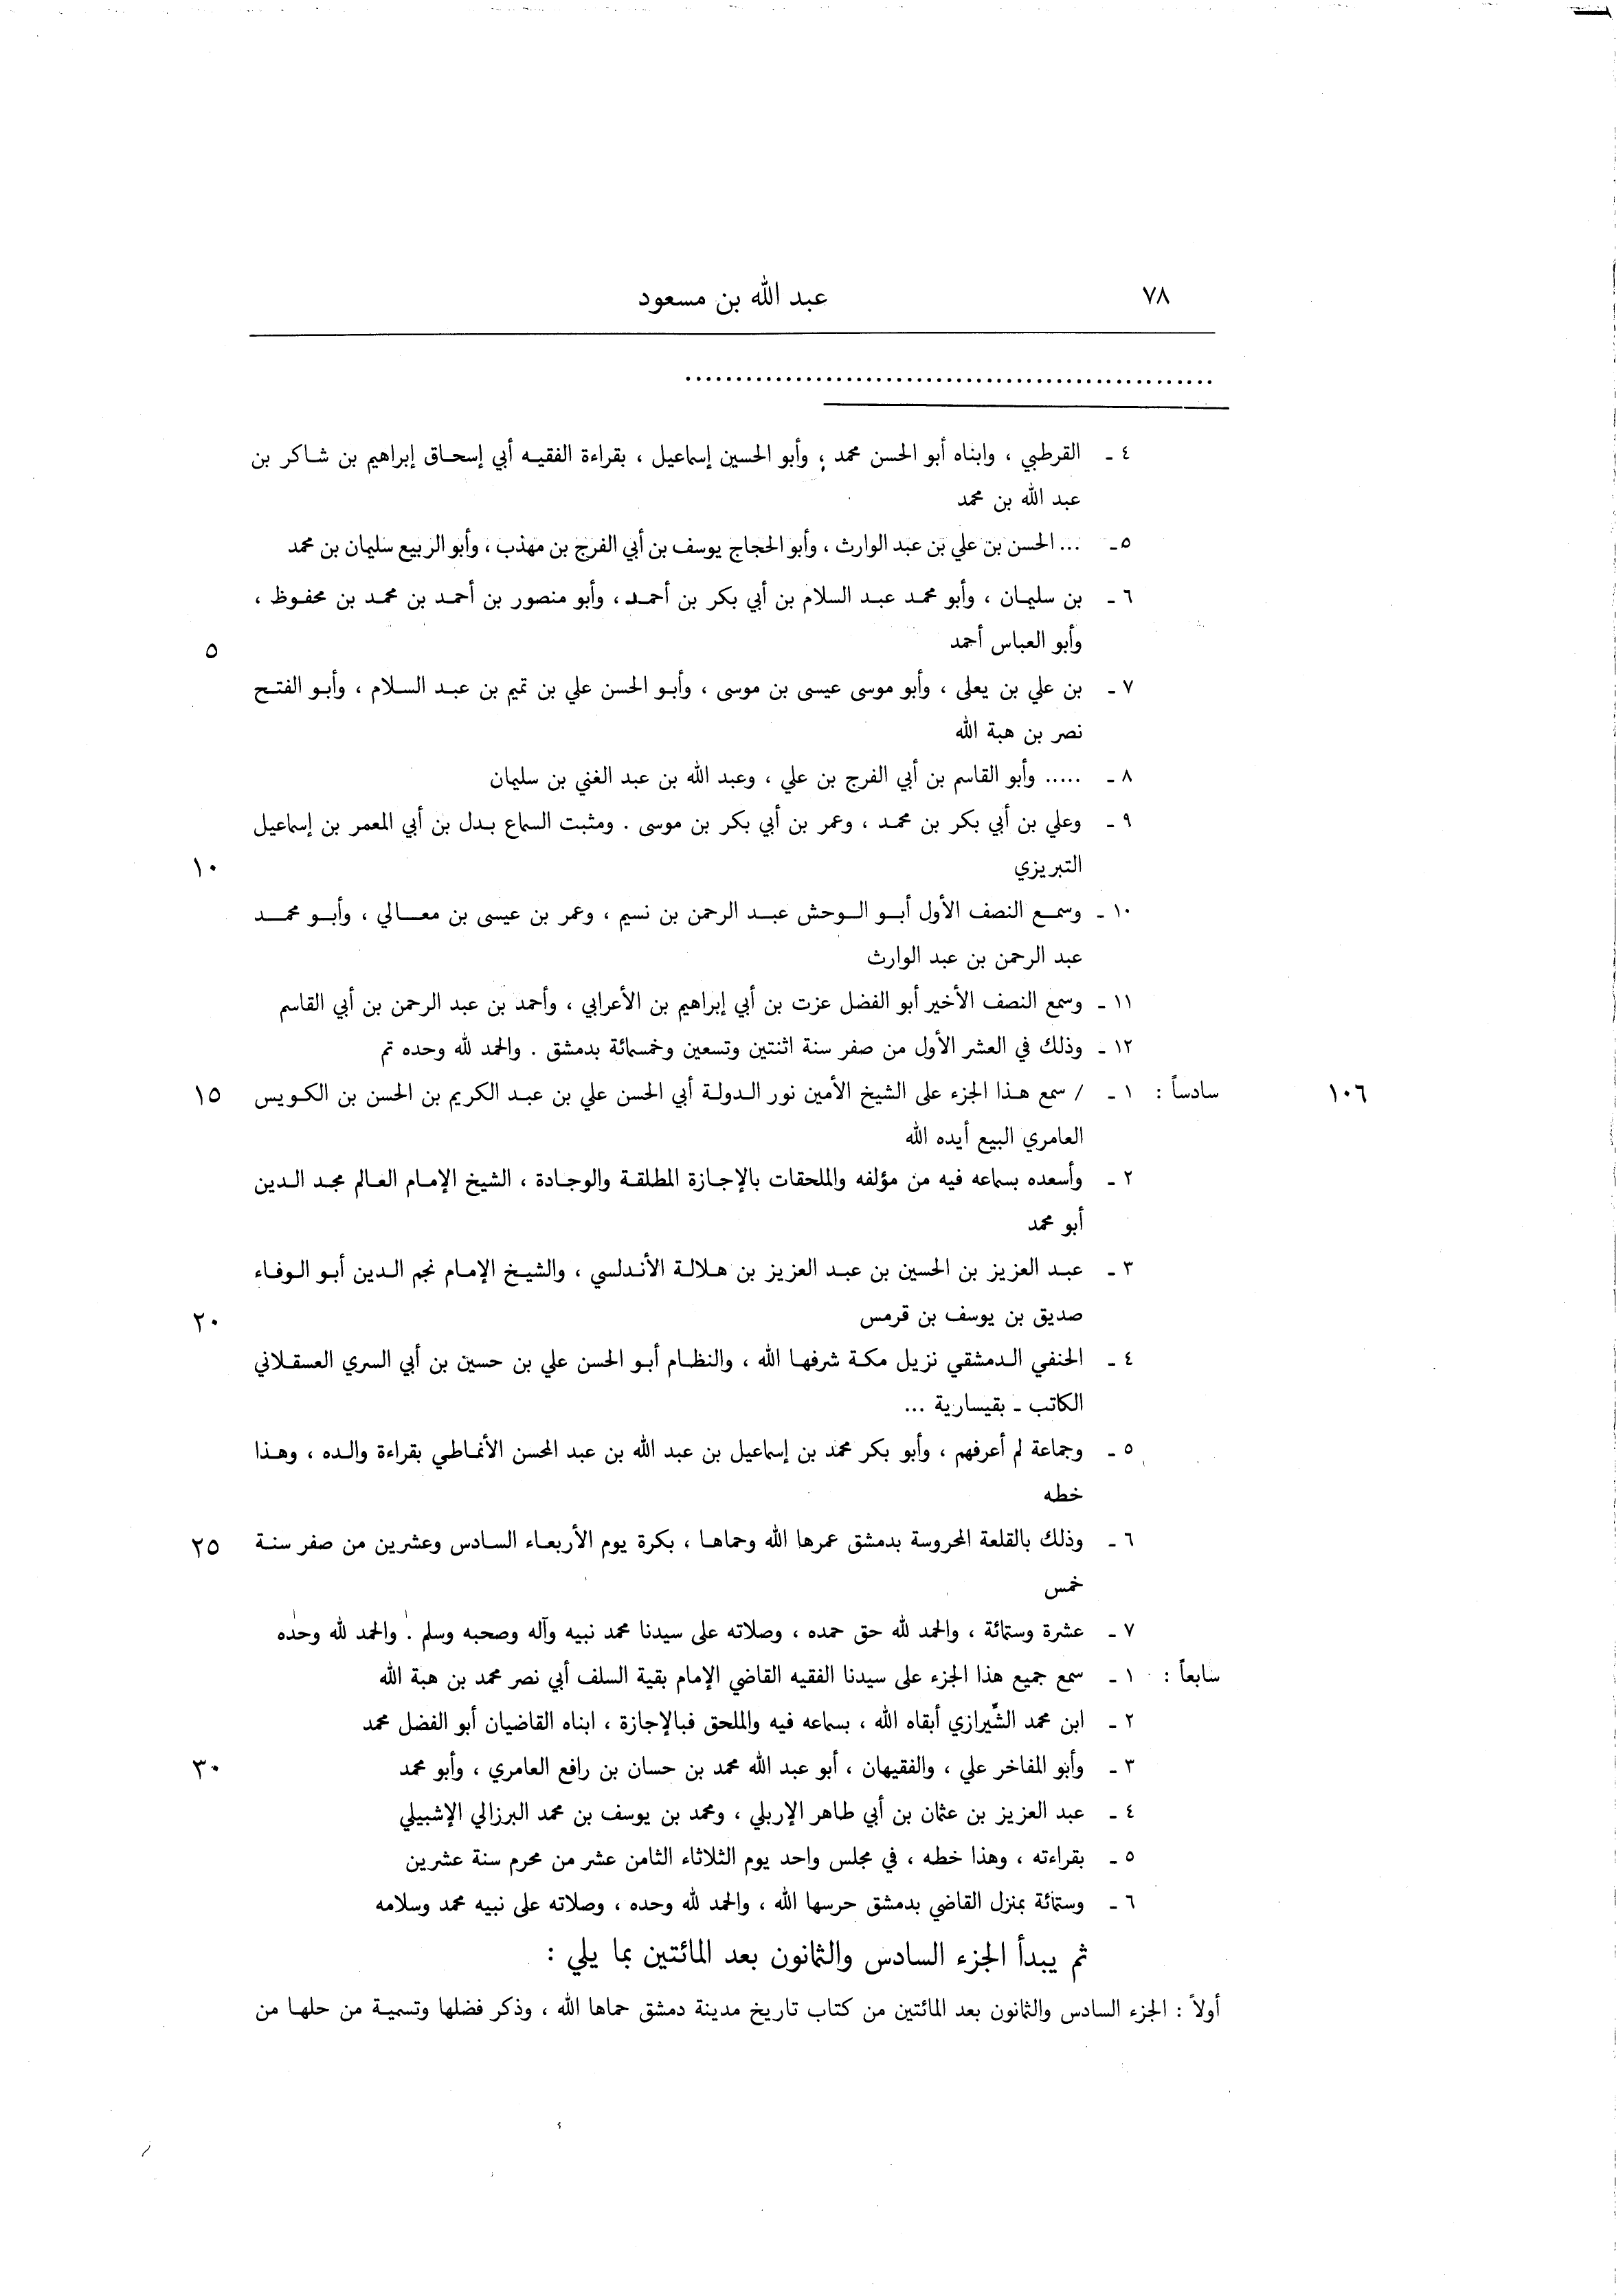 ٧٨ عبد الله بن مسعود
........................................................
٤ ـ القرطبي ، وابناه أبو الحسن محمد ؛ وأبو الحسين إسماعيل ، بقراءة الفقيه أبي إسحاق إبراهيم بن شاكر بن
عبد الله بن محمد
٥ ـ ... الحسن بن علي بن عبد الوارث ، وأبو الحجاج يوسف بن أبي الفرج بن مهذب ، وأبو الربيع سليمان بن محمد
٦ ـ بن سليمان ، وأبو محمد عبد السلام بن أبي بكر بن أحمد ، وأبو منصور بن أحمد بن محمد بن محفوظ ،
وأبو العباس أحمد ٥
٧ ـ بن علي بن يعلى ، وأبو موسى عيسى بن موسى ، وأبو الحسن علي بن تميم بن عبد السلام ، وأبو الفتح
نصر بن هبة الله
٨ ـ ..... وأبو القاسم بن أبي الفرج بن علي ، وعبد الله بن عبد الغني بن سليمان
٩ ـ وعلي بن أبي بكر بن محمد ، وعمر بن أبي بكر بن موسى . ومثبت السماع بدل بن أبي المعمر بن إسماعيل
التبريزي ١٠
١٠ ـ وسمع النصف الأول أبو الوحش عبد الرحمن بن نسيم ، وعمر بن عيسى بن معالي ، وأبو محمد
عبد الرحمن بن عبد الوارث
١١ ـ وسمع النصف الأخير أبو الفضل عزت بن أبي إبراهيم بن الأعرابي ، وأحمد بن عبد الرحمن بن أبي القاسم
١٢ ـ وذلك في العشر الأول من صفر سنة اثنتين وتسعين وخمسمائة بدمشق . والحمد لله وحده تم
١٠٦ سادساً : ١ ـ / سمع هذا الجزء على الشيخ الأمين نور الدولة أبي الحسن علي بن عبد الكريم بن الحسن بن الكويس ١٥
العامري البيع أيده الله
٢ ـ وأسعده بسماعه فيه من مؤلفه والملحقات بالإجازة المطلقة والوجادة ، الشيخ الإمام العالم مجد الدين
أبو محمد
٣ ـ عبد العزيز بن الحسين بن عبد العزيز بن هلالة الأندلسي ، والشيخ الإمام نجم الدين أبو الوفاء
صديق بن يوسف بن قرمس ٢٠
٤ ـ الحنفي الدمشقي نزيل مكة شرفها الله ، والنظام أبو الحسن علي بن حسين بن أبي السري العسقلاني
الكاتب ـ بقيسارية ...
٥ ـ وجماعة لم أعرفهم ، وأبو بكر محمد بن إسماعيل بن عبد الله بن عبد المحسن الأنماطي بقراءة والده ، وهذا
خطه
٦ ـ وذلك بالقلعة المحروسة بدمشق عمرها الله وحماها ، بكرة يوم الأربعاء السادس وعشرين من صفر سنة ٢٥
خمس
٧ ـ عشرة وستمائة ، والحمد لله حق حمده ، وصلاته على سيدنا محمد نبيه وآله وصحبه وسلم . والحمد لله وحده
سابعاً : ١ ـ سمع جميع هذا الجزء على سيدنا الفقيه القاضي الإمام بقية السلف أبي نصر محمد بن هبة الله
٢ ـ ابن محمد الشّيرازي أبقاه الله ، بسماعه فيه والملحق فبالإجازة ، ابناه القاضيان أبو الفضل محمد
٣ ـ وأبو المفاخر علي ، والفقيهان ، أبو عبد الله محمد بن حسان بن رافع العامري ، وأبو محمد ٣٠
٤ ـ عبد العزيز بن عثمان بن أبي طاهر الإربلي ، ومحمد بن يوسف بن محمد البرزالي الإشبيلي
٥ ـ بقراءته ، وهذا خطه ، في مجلس واحد يوم الثلاثاء الثامن عشر من محرم سنة عشرين
٦ ـ وستمائة بمنزل القاضي بدمشق حرسها الله ، والحمد لله وحده ، وصلاته على نبيه محمد وسلامه
ثم يبدأ الجزء السادس والثمانون بعد المائتين بما يلي :
أولاً : الجزء السادس والثمانون بعد المائتين من كتاب تاريخ مدينة دمشق حماها الله ، وذكر فضلها وتسمية من حلها من